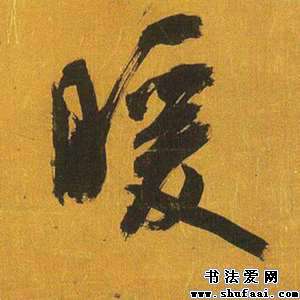 暖
书法爱网
www.shufaai.com